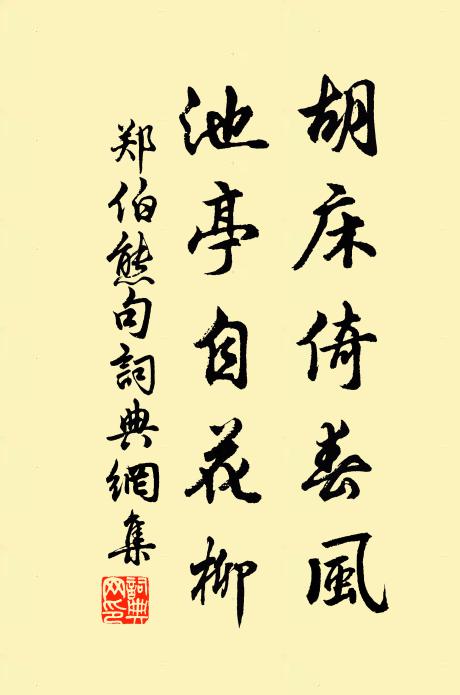 胡床倚春風
池亭自花柳
郑伯熊句詞典網集
詞典網印